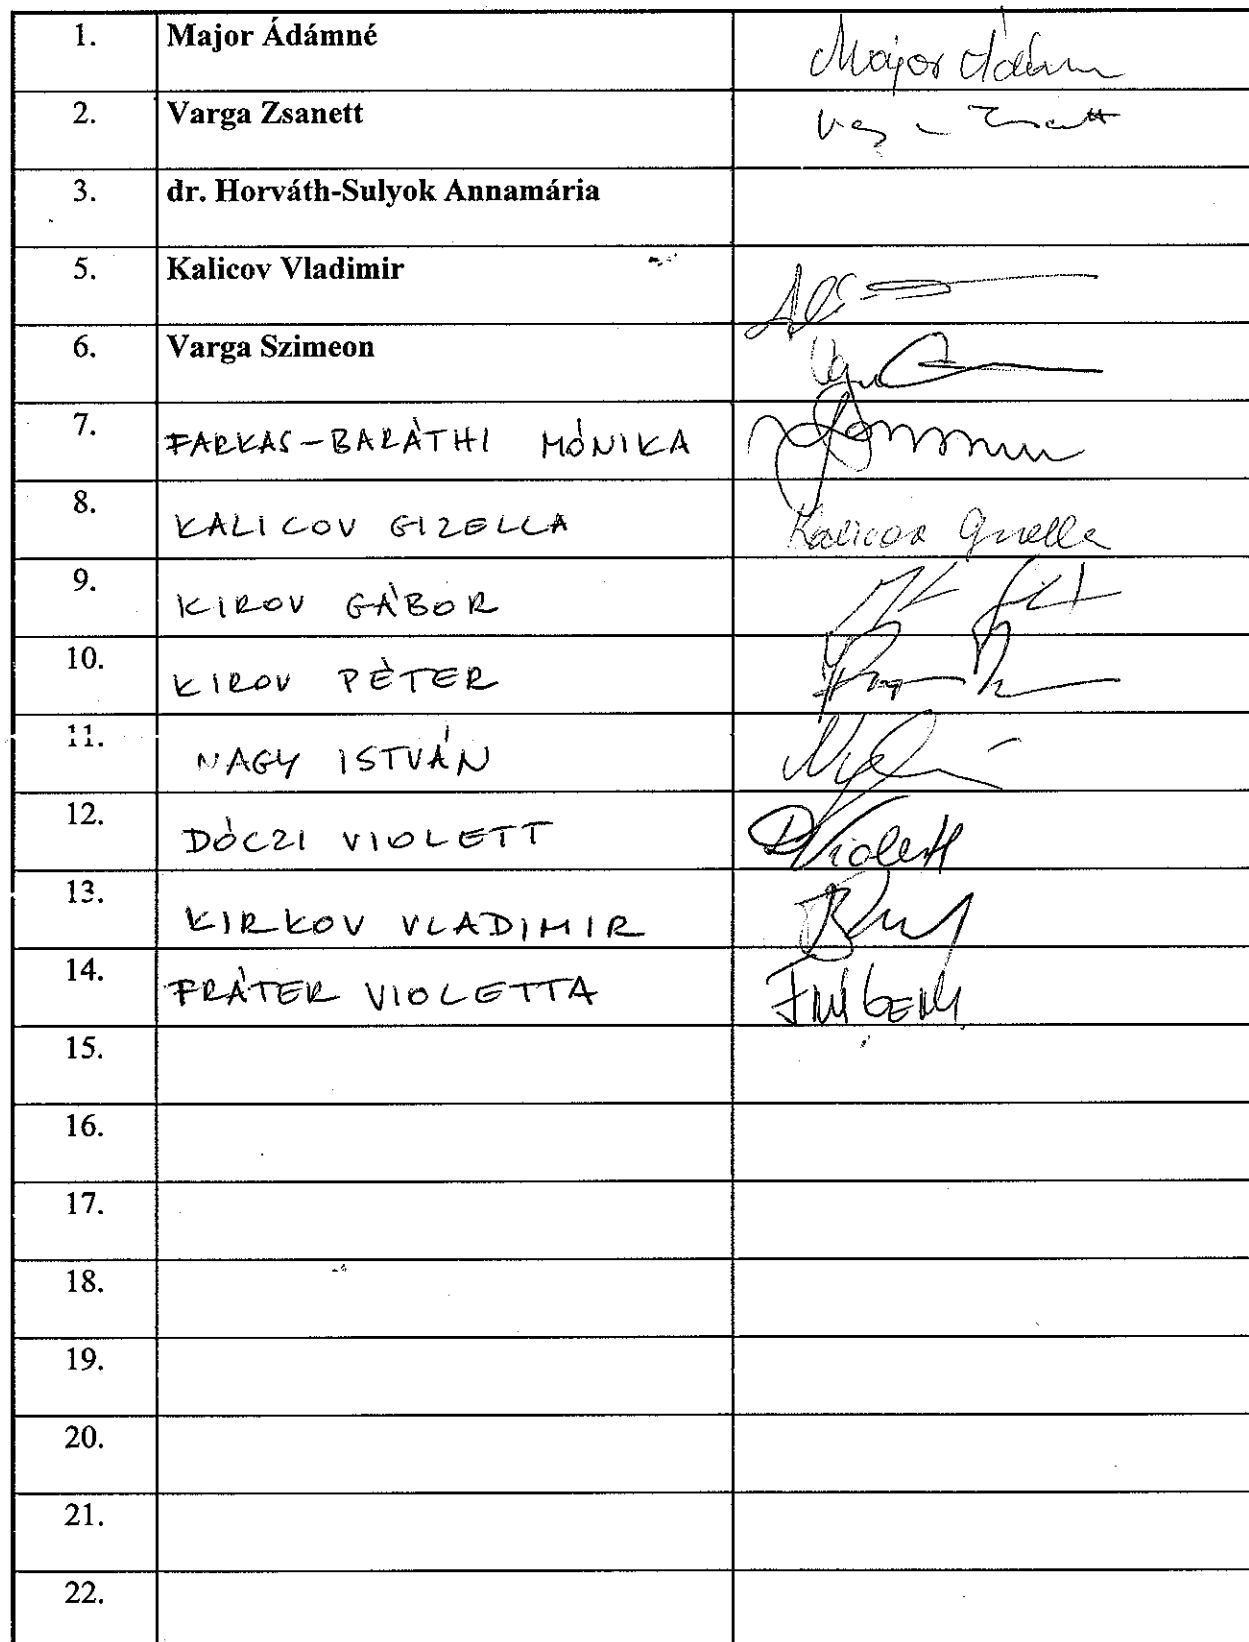 1. Major Ádámné Major Ádámné
2. Varga Zsanett
3. dr. Horváth-Sulyok Annamária
5. Kalicov Vladimir
6. Varga Szimeon
7. FARKAS-BARÁTHI MÓNIKA
8. KALICOV GIZELLA Kalicov Gizella
9. KIROV GÁBOR
10. KIROV PÉTER
11. NAGY ISTVÁN
12. DÓCZI VIOLETT D Violett
13. KIRKOV VLADIMIR
14. FRÁTER VIOLETTA
15.
16.
17.
18.
19.
20.
21.
22.